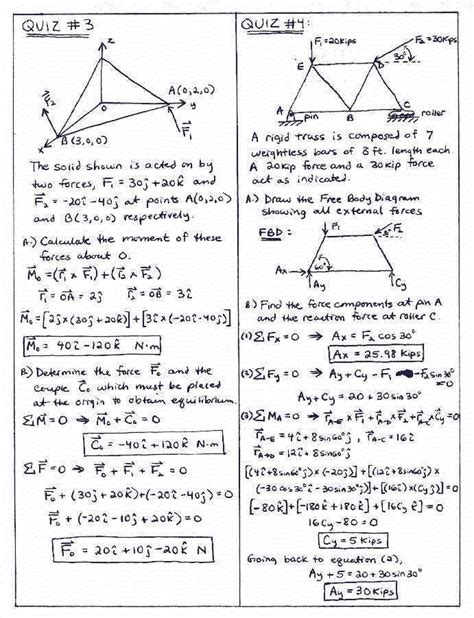 QUIZ #3
z
O
A(0,2,0)
y
F₂
F₁
x
B(3,0,0)
The solid shown is acted on by
two forces, F₁ = 30ĵ + 20k̂ and
F₂ = -20î - 40ĵ at points A(0,2,0)
and B(3,0,0) respectively.
A.) Calculate the moment of these
forces about O.
M₀ = (r₁ x F₁) + (r₂ x F₂)
r₁ = OA = 2ĵ r₂ = OB = 3î
M₀ = [2ĵ x (30ĵ + 20k̂)] + [3î x (-20î - 40ĵ)]
M₀ = 40î - 120k̂ N·m
B.) Determine the force F₀ and the
couple C₀ which must be placed
at the origin to obtain equilibrium.
ΣM = 0 ⇒ M₀ + C₀ = 0
C₀ = -40î + 120k̂ N·m
ΣF = 0 ⇒ F₀ + F₁ + F₂ = 0
F₀ + (30ĵ + 20k̂) + (-20î - 40ĵ) = 0
F₀ + (-20î - 10ĵ + 20k̂) = 0
F₀ = 20î + 10ĵ - 20k̂ N
QUIZ #4:
F₁ = 20kips
F₂ = 30kips
30°
E
D
A
pin
B
C
roller
A rigid truss is composed of 7
weightless bars of 8 ft. length each
A 20kip force and a 30kip force
act as indicated.
A.) Draw the Free Body Diagram
showing all external forces
FBD:
F₁
F₂
Ax
60°
Ay
Cy
B.) Find the force components at pin A
and the reaction force at roller C.
(1) ΣFx = 0 ⇒ Ax = F₂ cos 30°
Ax = 25.98 Kips
(2) ΣFy = 0 ⇒ Ay + Cy - F₁ - F₂ sin 30° = 0
Ay + Cy = 20 + 30 sin 30°
(3) ΣMA = 0 ⇒ r A-E x F₁ + r A-D x F₂ + r A-C x Cy = 0
r A-E = 4î + 8sin60°ĵ, r A-C = 16î
r A-D = 12î + 8sin60°ĵ
[(4î + 8sin60°ĵ) x (-20ĵ)] + [(12î + 8sin60°ĵ)
x (-30 cos 30°î - 30 sin 30°ĵ)] + [(16î) x (Cyĵ)] = 0
[-80k̂] + [-180k̂ + 180k̂] + [16Cy k̂] = 0
16Cy - 80 = 0
Cy = 5 Kips
Going back to equation (2),
Ay + 5 = 20 + 30 sin 30°
Ay = 30 Kips